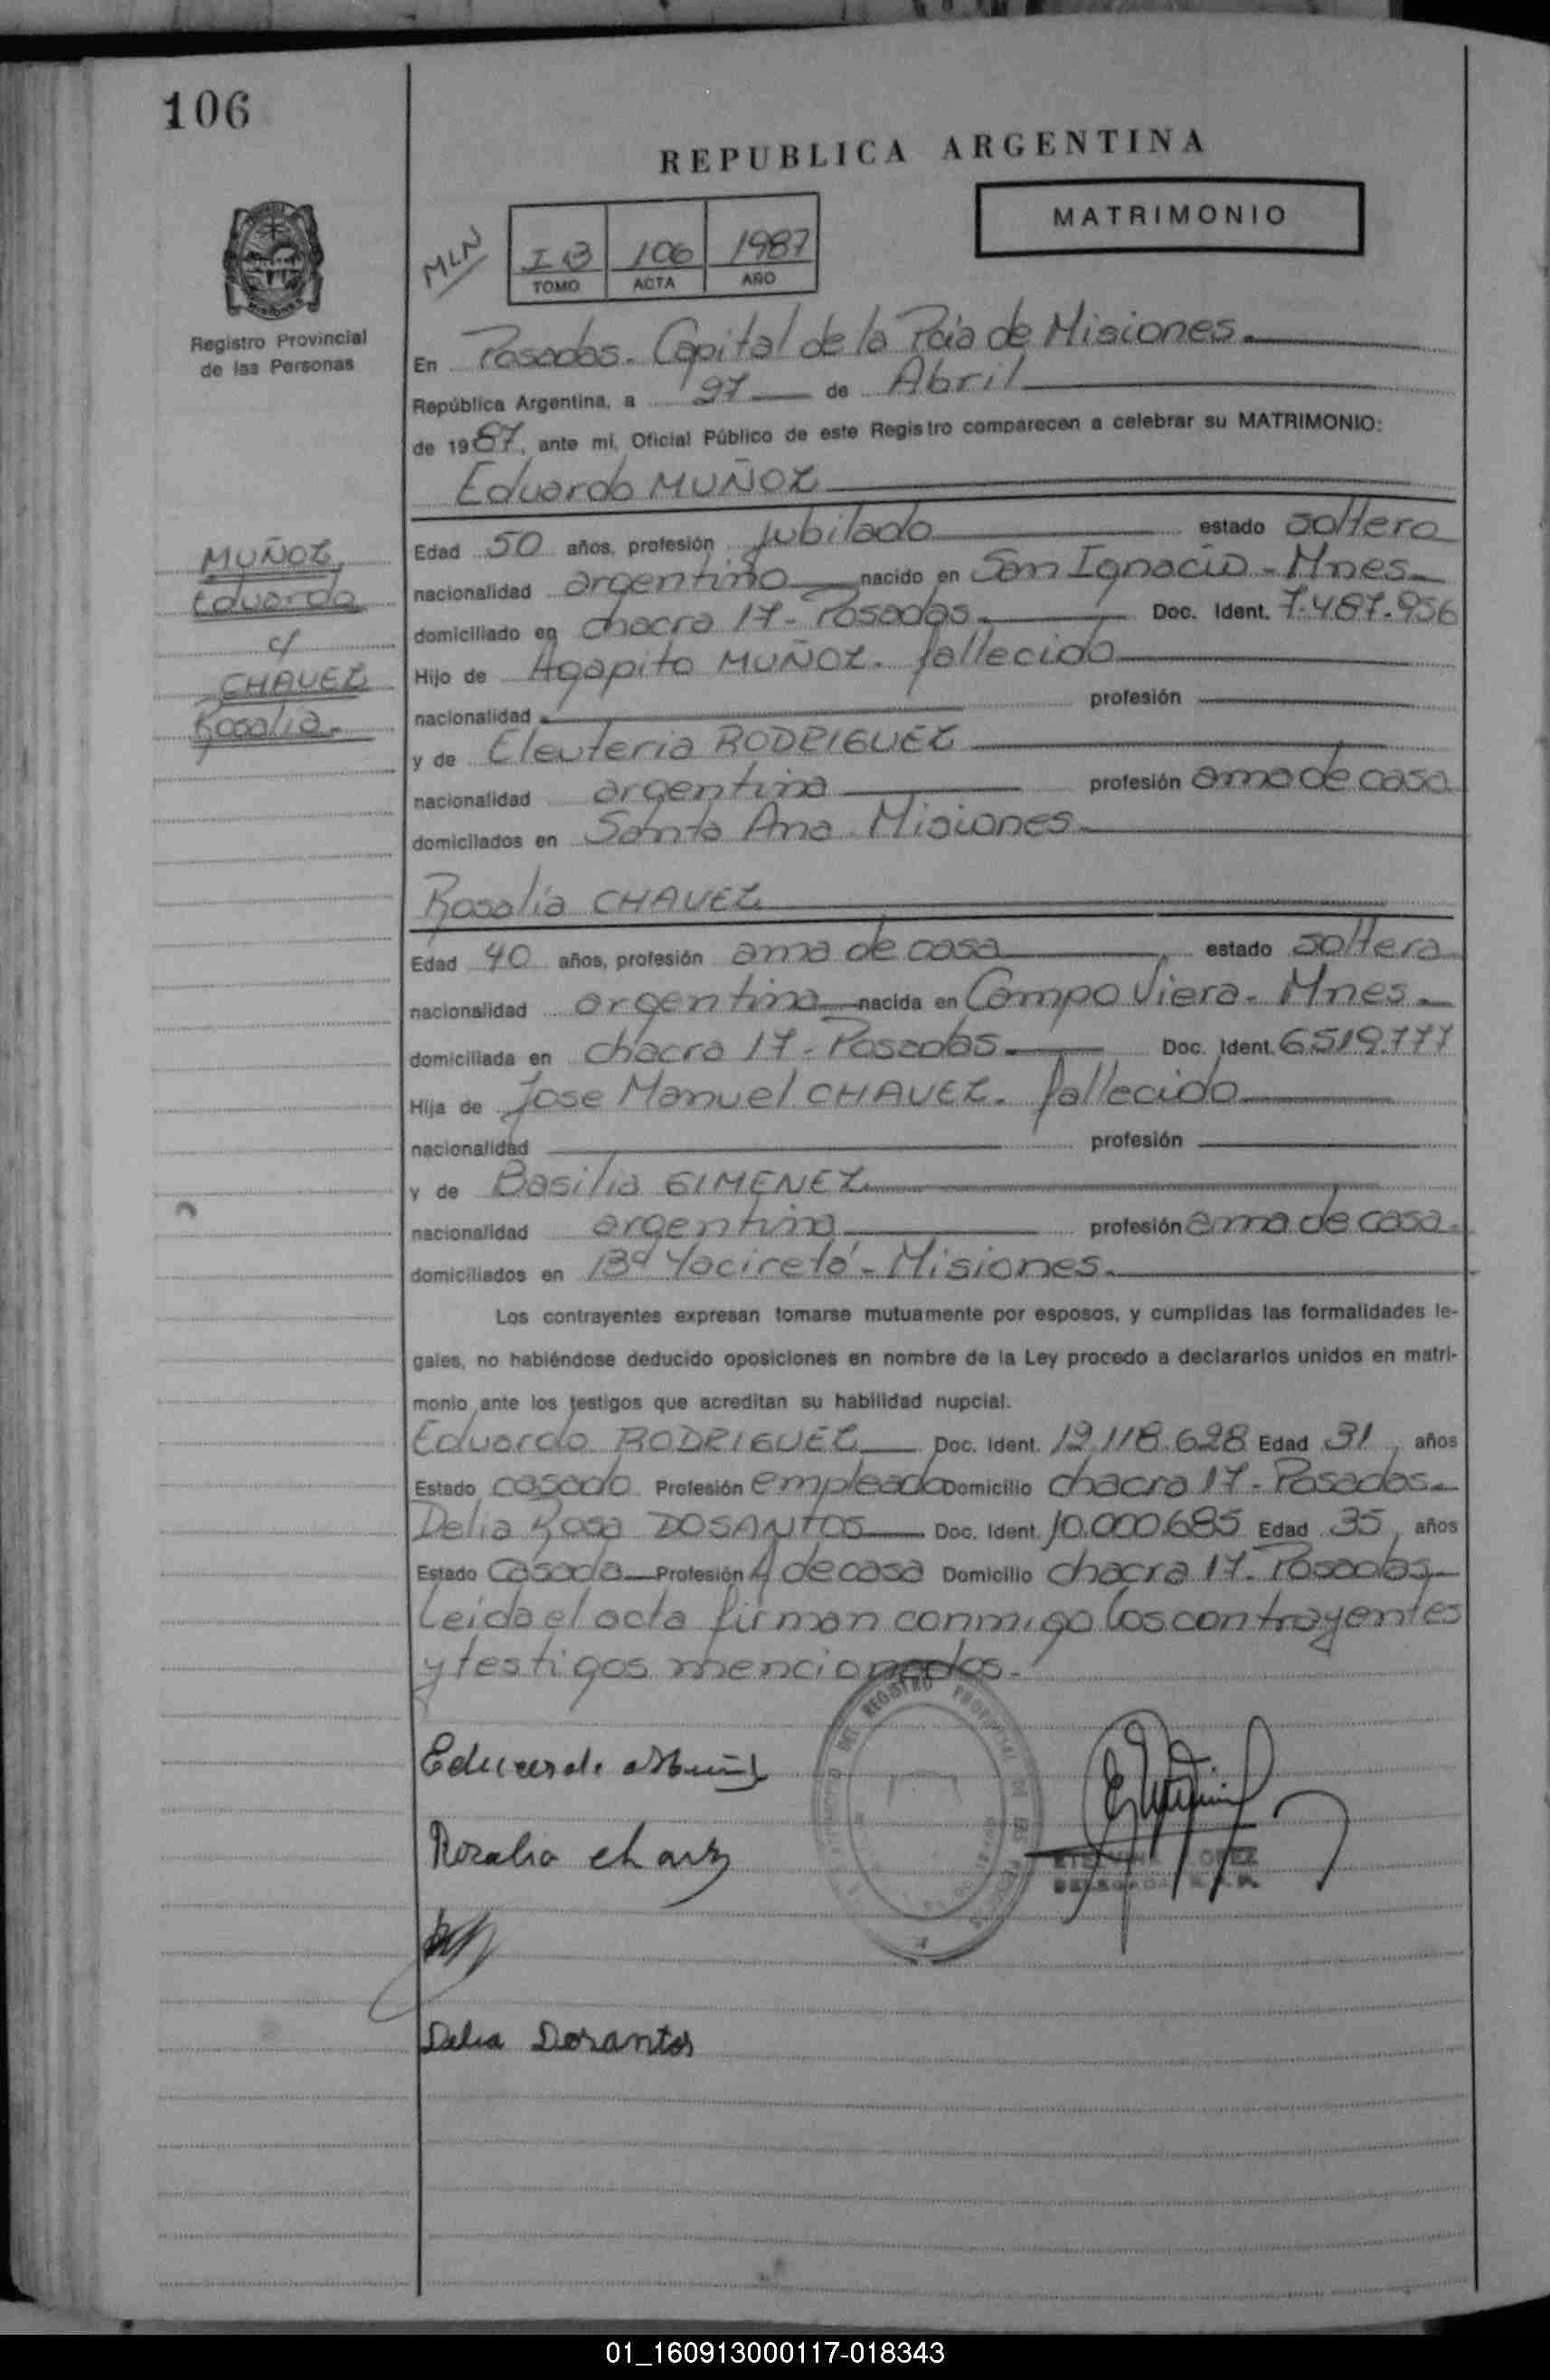 106
REPUBLICA ARGENTINA
MATRIMONIO
MLN
I B 106 1987
TOMO ACTA AÑO
Registro Provincial
de las Personas
En Posadas. Capital de la Pcia de Misiones.
República Argentina, a 27 de Abril
de 1987, ante mí, Oficial Público de este Registro comparecen a celebrar su MATRIMONIO:
Eduardo MUÑOZ
MUÑOZ
Eduardo
c/
CHAVEZ
Rosalia.
Edad 50 años, profesión jubilado estado soltero
nacionalidad argentino nacido en San Ignacio - Mnes.
domiciliado en chacra 17 - Posadas. Doc. Ident. 7.487.956
Hijo de Agapito MUÑOZ. fallecido
nacionalidad profesión
y de Eleuteria RODRIGUEZ
nacionalidad argentina profesión ama de casa
domicilados en Santa Ana Misiones.
Rosalía CHAVEZ
Edad 40 años, profesión ama de casa estado soltera
nacionalidad argentina nacida en Campo Viera - Mnes.
domiciliada en chacra 17 - Posadas. Doc. Ident. 6519.777
Hija de Jose Manuel CHAVEZ. fallecido
nacionalidad profesión
y de Basilia GIMENEZ
nacionalidad argentina profesión ama de casa.
domiciliados en Bº Yaciretá - Misiones.
Los contrayentes expresan tomarse mutuamente por esposos, y cumplidas las formalidades le-
gales, no habiéndose deducido oposiciones en nombre de la Ley procedo a declararlos unidos en matri-
monio ante los testigos que acreditan su habilidad nupcial.
Eduardo RODRIGUEZ Doc. Ident. 12.118.628 Edad 31, años
Estado casado Profesión empleado Domicilio chacra 17 - Posadas.
Delia Rosa DOSANTOS Doc. Ident. 10.000.685 Edad 35, años
Estado Casada Profesión A de casa Domicilio chacra 17. Posadas
Leida el acta firman conmigo los contrayentes
y testigos mencionados.
Eduardo Muñoz
DEL REGISTRO PROVINCIAL DE LAS
Rozalia chavz
LOPEZ
DELEGADA R.P.P.
Delia Dosantos
01_160913000117-018343